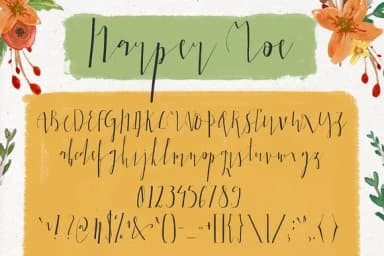 Harper
ABCDEFGHIJKLMNOPQRSTUVWXYZ
abcdefghijklmnopqrstuvwxyz
0123456789
!?@#$%^&*()-_=+[]{}\|/